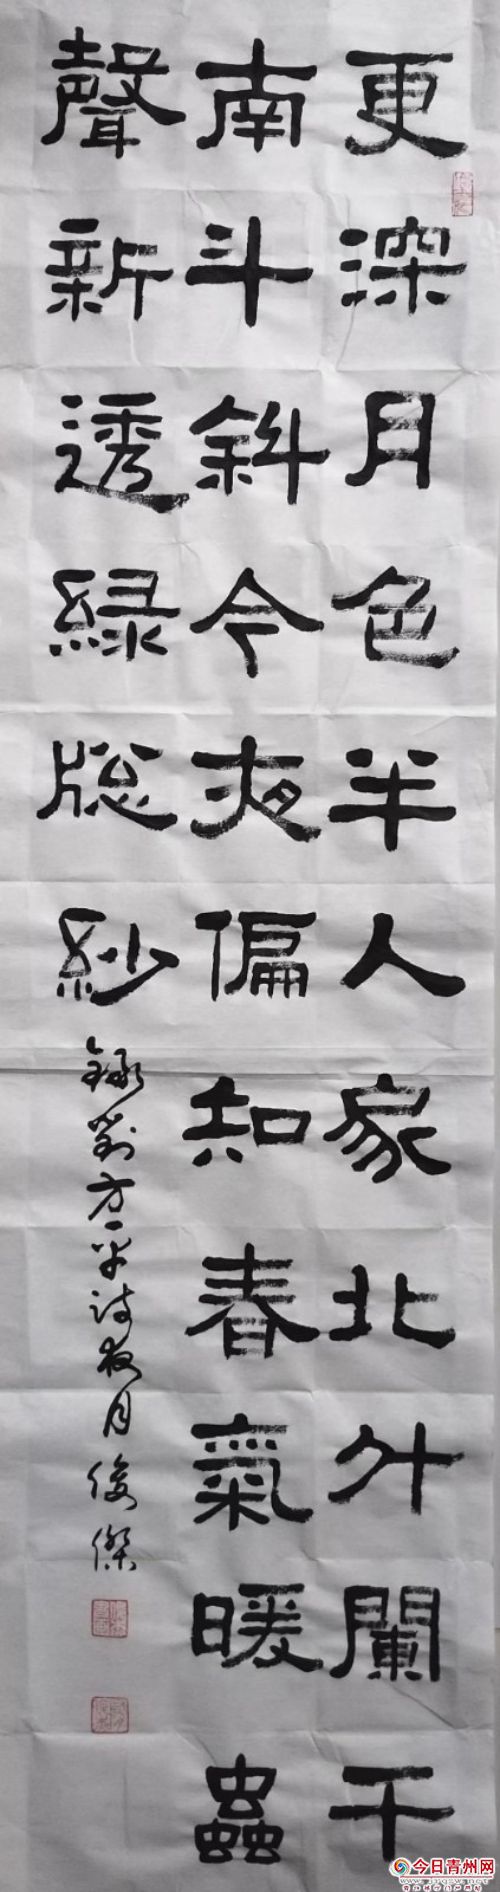 更深月色半人家北斗闌干
南斗斜今夜偏知春氣暖蟲
聲新透綠牕紗
錄劉方平詩夜月俊傑
今日青州网